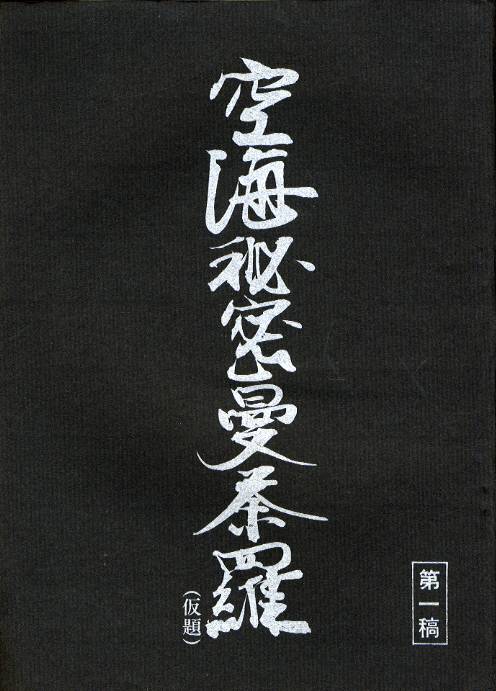 空海秘密曼荼羅
(仮題)
第一稿